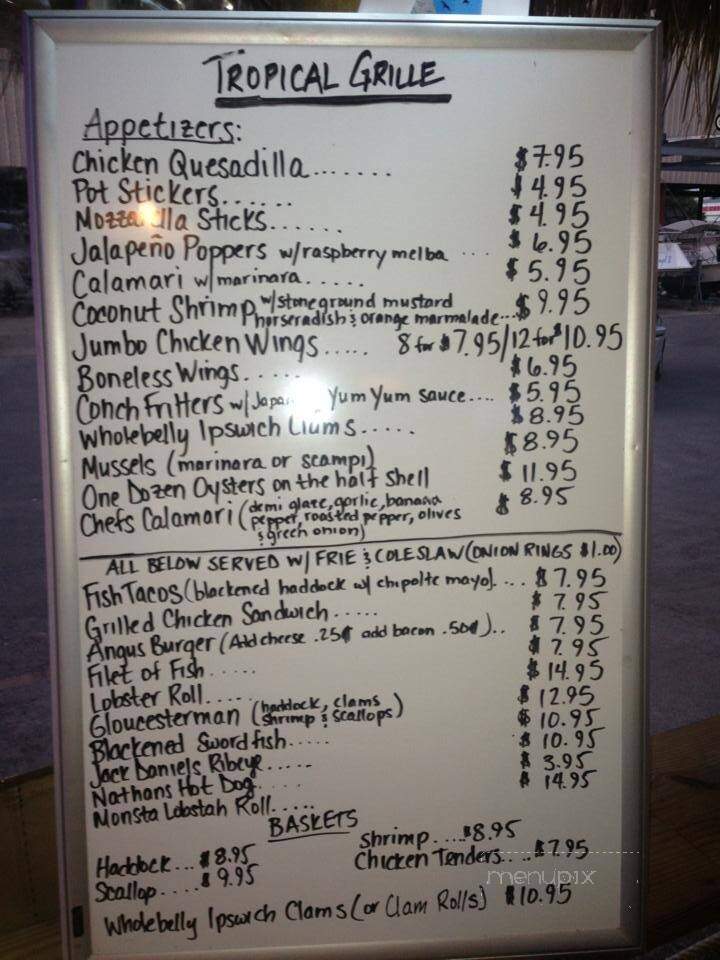 TROPICAL GRILLE
Appetizers:
Chicken Quesadilla....... $7.95
Pot Stickers...... $4.95
Sticks...... $4.95
Jalapeño Poppers w/raspberry melba ... $6.95
Calamari w/marinara..... $5.95
Coconut Shrimp w/stoneground mustard
horseradish & orange marmalade... $9.95
Jumbo Chicken Wings..... 8 for $7.95/12 for $10.95
Boneless Wings..... $6.95
Conch Fritters w/ Yum Yum sauce.... $5.95
Wholebelly Ipswich Clams..... $8.95
Mussels (marinara or scampi) $8.95
One Dozen Oysters on the half Shell $11.95
Chefs Calamari (demi glaze, garlic, banana $8.95
pepper, roasted pepper, olives
& green onion)
ALL BELOW SERVED W/ FRIE & COLESLAW (ONION RINGS $1.00)
Fish Tacos (blackened haddock w/ chipolte mayo).... $7.95
Grilled Chicken Sandwich..... $7.95
Angus Burger (Add cheese .25¢ add bacon .50¢).. $7.95
Filet of Fish..... $7.95
Lobster Roll..... $14.95
Gloucesterman (haddock, clams $12.95
shrimp & scallops)
Blackened Swordfish..... $10.95
Jack Daniels Ribeye..... $10.95
Nathans Hot Dog..... $3.95
Monsta Lobstah Roll..... $14.95
BASKETS
Haddock... $8.95
Scallop.... $9.95
Shrimp.... $8.95
Chicken Tenders.... $7.95
menupix
Wholebelly Ipswich Clams (or Clam Rolls) $10.95